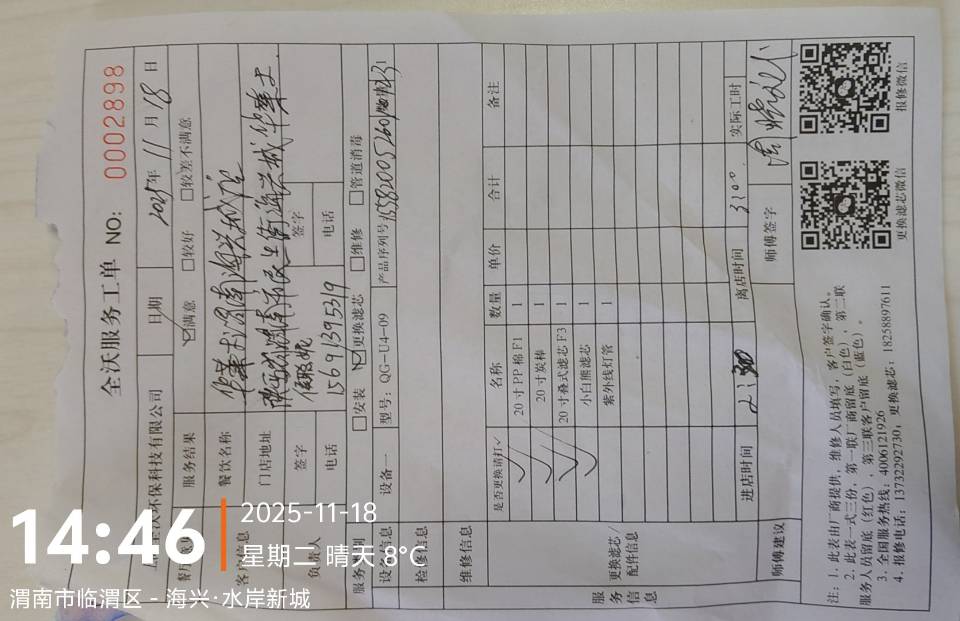 全沃服务工单 NO: 0002898
全沃环保科技有限公司 日期 2025年 11 月 18 日
服务结果 ☑满意 □较好 □较差不满意
餐饮名称
门店地址
客户信息
负责人 签字 签字
电话 15691395319 电话
□安装 ☑更换滤芯 □维修 □管道消毒
设备信息 设备一 型号: QG-U4-09 产品序列号
检修信息
维修信息
是否更换请打✓ 名称 数量 单价 合计 备注
✓ 20寸PP棉F1 1
✓ 20寸炭棒 1
✓ 20寸叠式滤芯F3 1
✓ 小白熊滤芯 1
紫外线灯管 1
服务信息
更换滤芯/配件信息
进店时间 离店时间 3:00 实际工时
师傅建议 师傅签字
注: 1. 此表由厂商提供, 维修人员填写, 客户签字确认。
2. 此表一式三份, 第一联厂商留底 (白色), 第二联
服务人员留底 (红色), 第三联客户留底 (蓝色)。
3. 全国服务热线: 4006121926
4. 报修电话: 13732292730; 更换滤芯: 18258897611
更换滤芯微信 报修微信
14:46
2025-11-18
星期二 晴天 8℃
渭南市临渭区 - 海兴·水岸新城